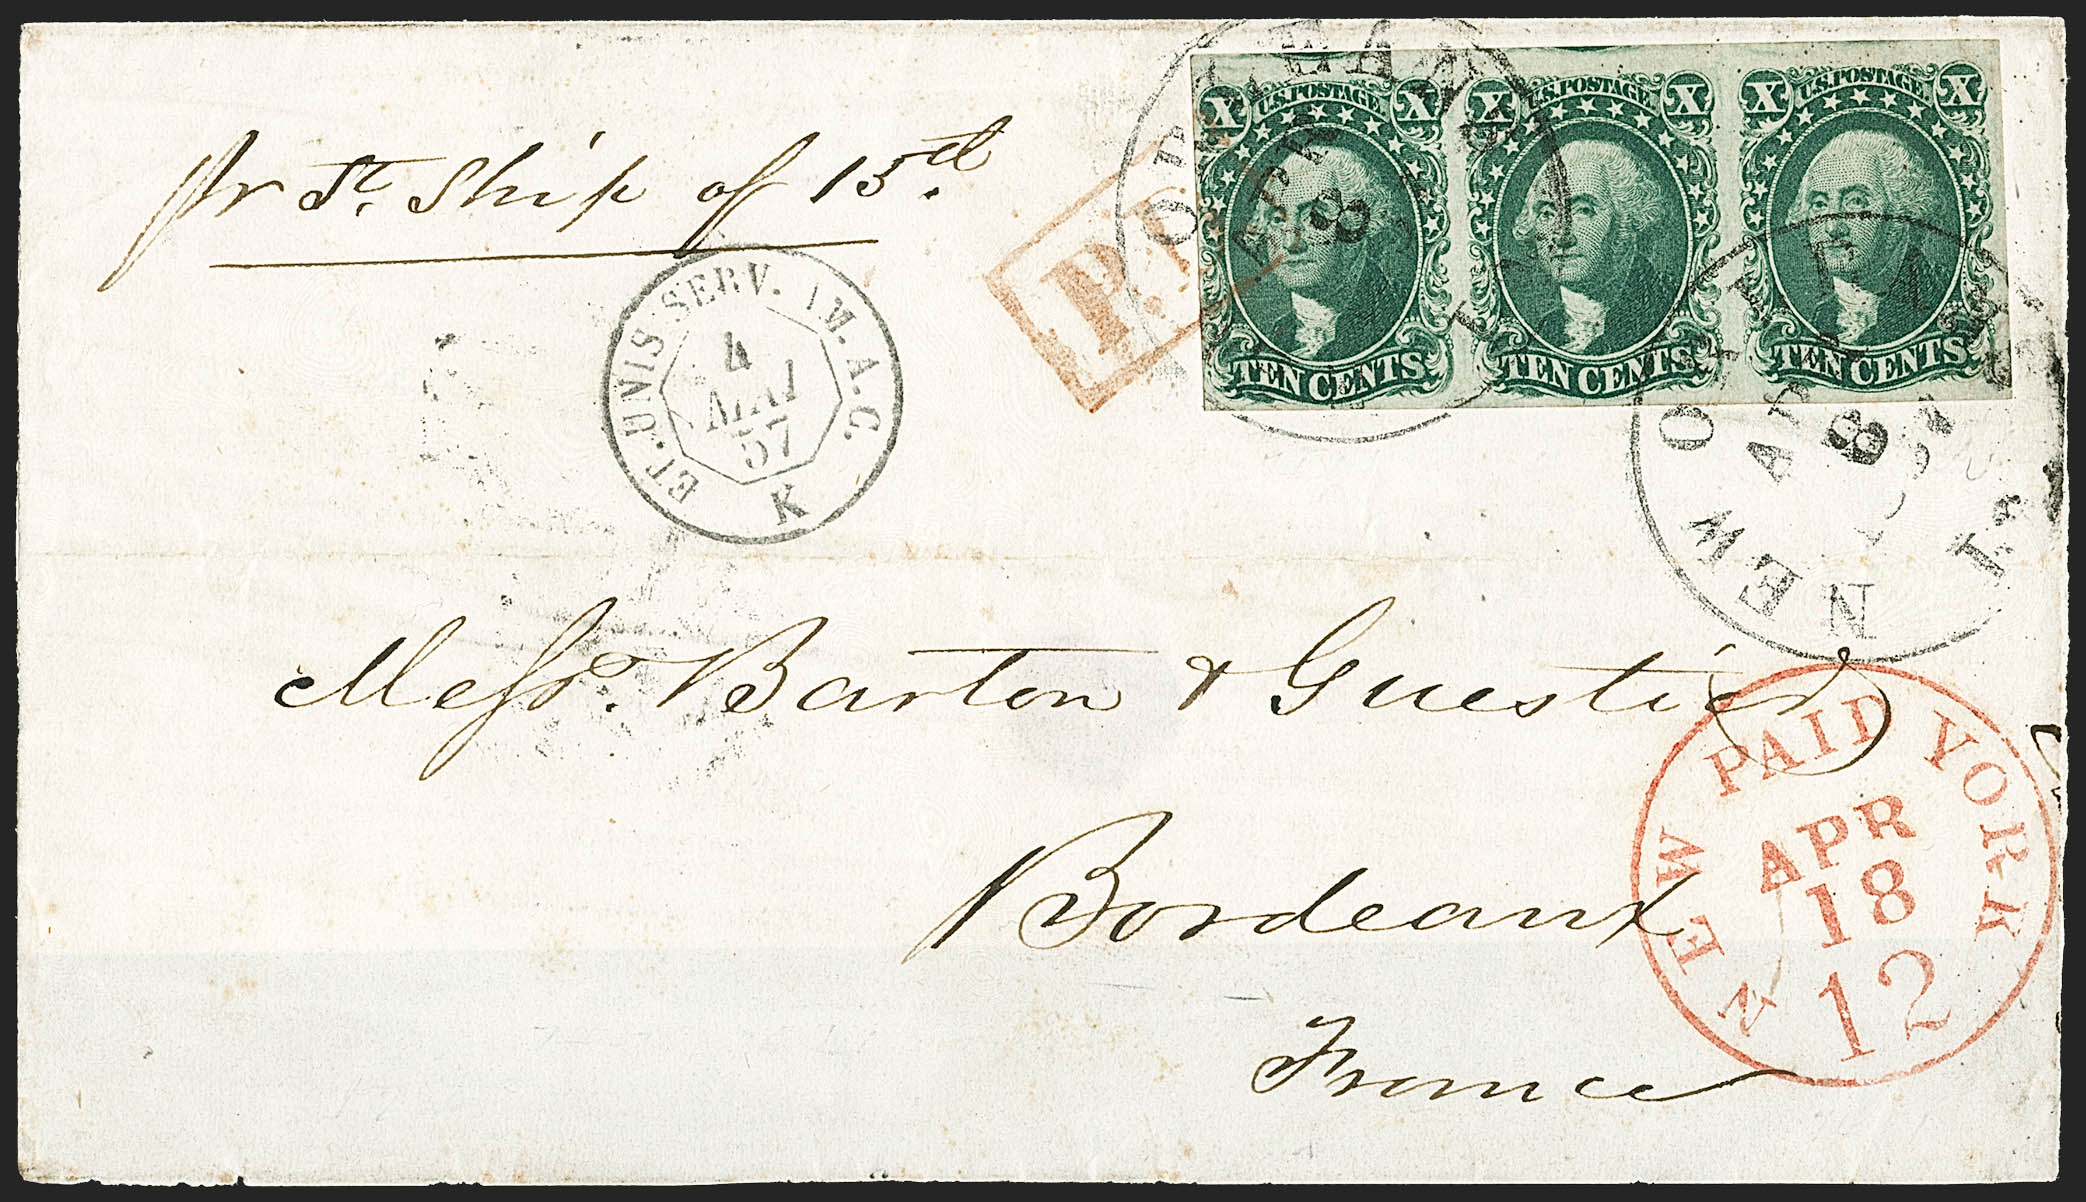 pr St. Ship of 15th.
X U.S. POSTAGE X
TEN CENTS
X U.S. POSTAGE X
TEN CENTS
X U.S. POSTAGE X
TEN CENTS
ORLEANS
APR
8
P.
ET-UNIS SERV. AM. A.C.
4
MAI
57
K
NEW ORLEANS
APR
8
Messrs. Barton & Guestier
Bordeaux
France
NEW PAID YORK
APR
18
12